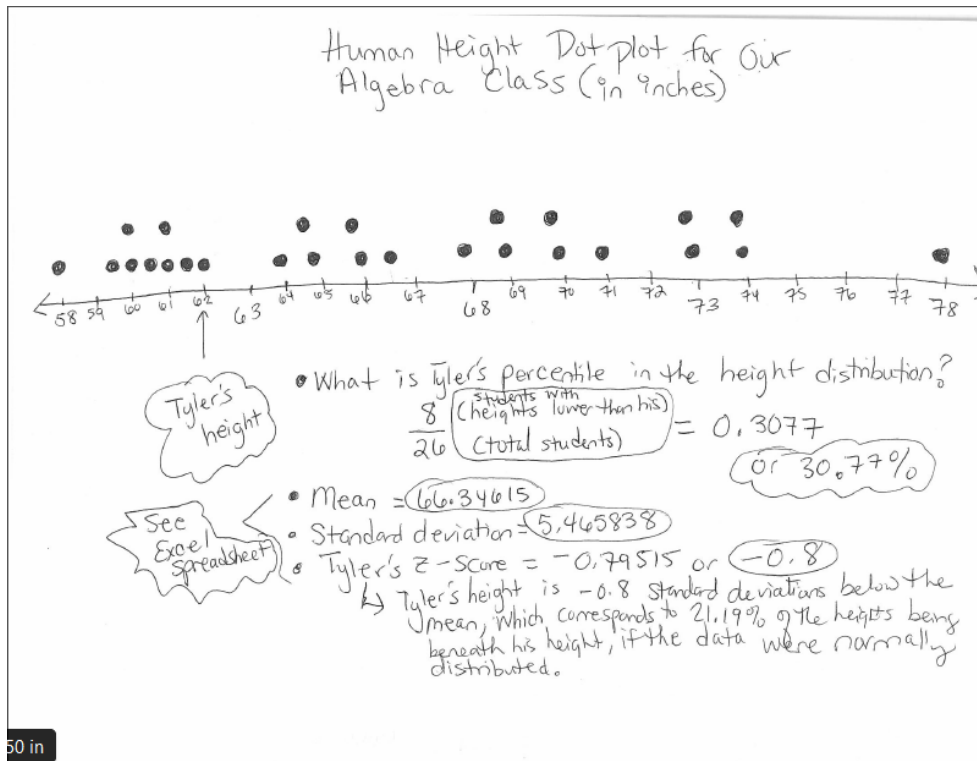 Human Height Dot plot for Our
Algebra Class (in inches)
58 59 60 61 62 63 64 65 66 67 68 69 70 71 72 73 74 75 76 77 78
Tyler's
height
• What is Tyler's percentile in the height distribution?
8 (students with heights lower than his)
26 (total students)
= 0.3077
or 30.77%
See
Excel
Spreadsheet
• Mean = 66.34615
• Standard deviation = 5.465838
• Tyler's z-score = -0.79515 or -0.8
↳ Tyler's height is -0.8 standard deviations below the
mean, which corresponds to 21.19% of the heights being
beneath his height, if the data were normally
distributed.
50 in